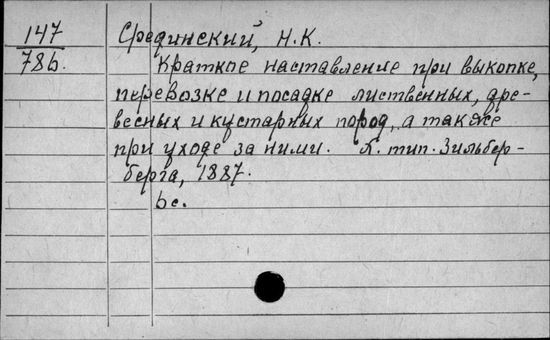 147 Срединский, Н.К.
78б. Краткое наставление при выкопке,
перевозке и посадке лиственных, дре-
весных и кустарных пород, а также
при уходе за ними. К. тип. Зильбер-
берга, 1887.
bc.